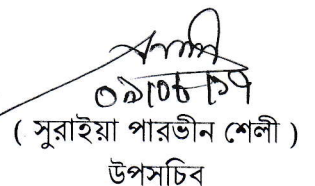 ০৯/০৮/১৭
( সুরাইয়া পারভীন শেলী )
উপসচিব